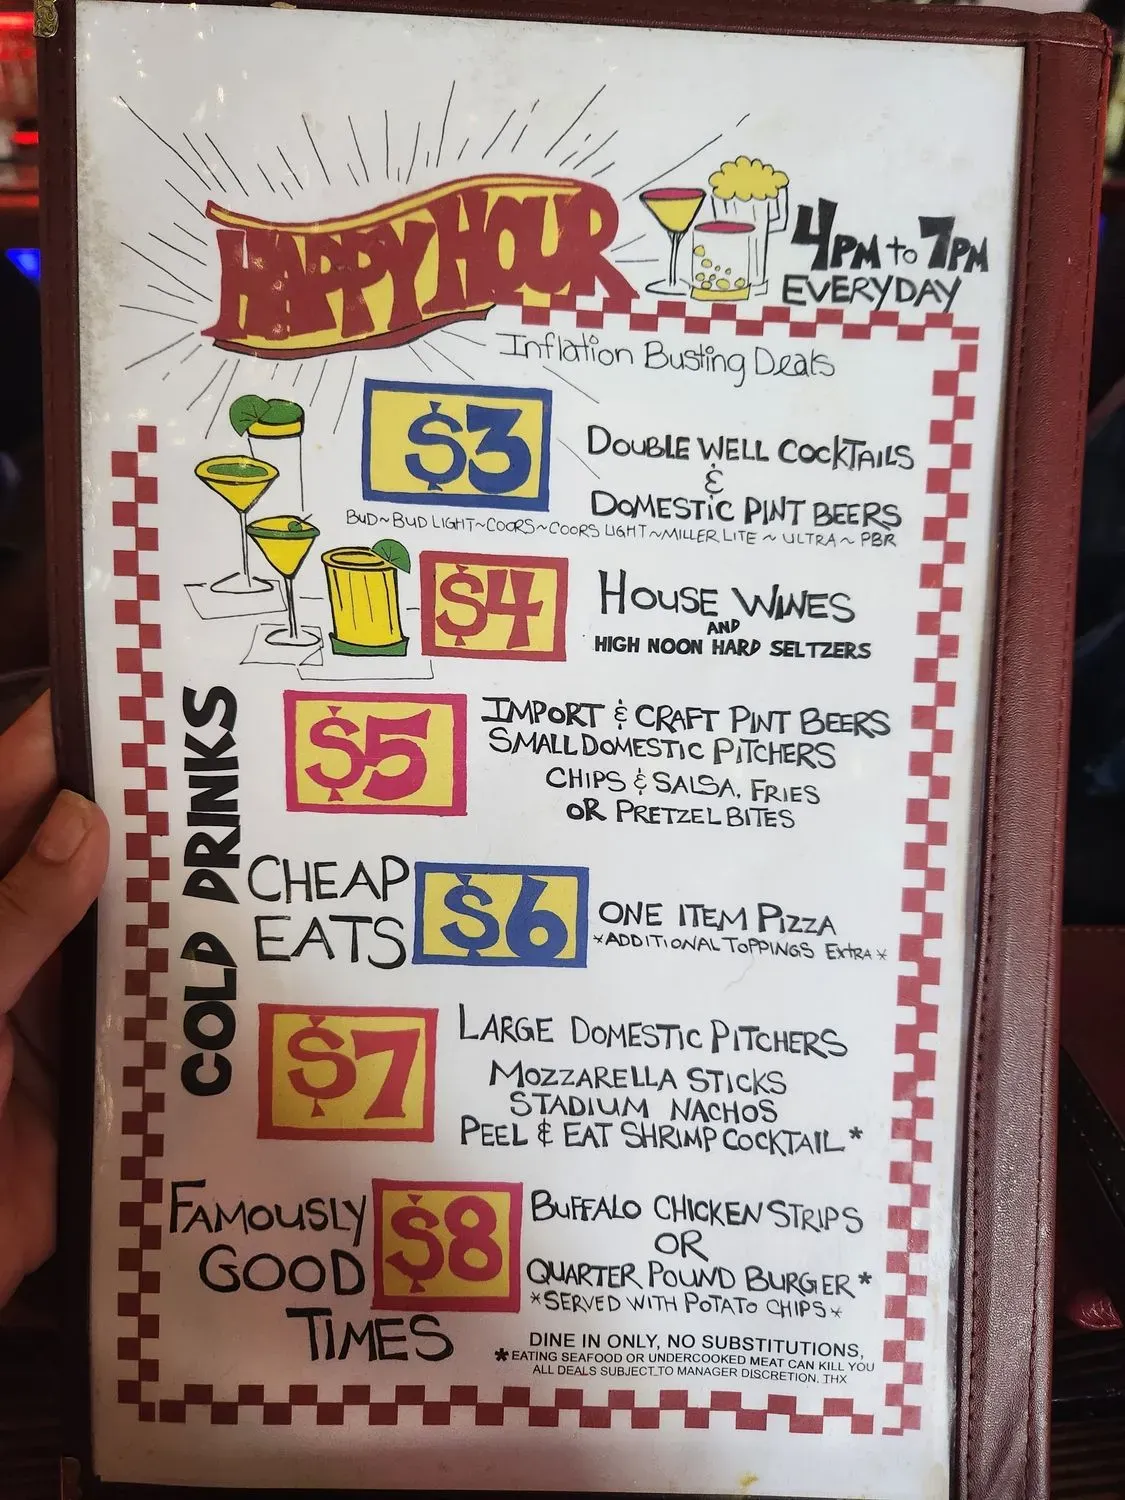 HAPPY HOUR
4PM to 7PM
EVERYDAY
Inflation Busting Deals
$3
DOUBLE WELL COCKTAILS
&
DOMESTIC PINT BEERS
BUD~BUD LIGHT~COORS~COORS LIGHT~MILLER LITE~ULTRA~PBR
$4
HOUSE WINES
AND
HIGH NOON HARD SELTZERS
$5
IMPORT & CRAFT PINT BEERS
SMALL DOMESTIC PITCHERS
CHIPS & SALSA, FRIES
OR PRETZEL BITES
COLD DRINKS
CHEAP
EATS
$6
ONE ITEM PIZZA
*ADDITIONAL TOPPINGS EXTRA*
$7
LARGE DOMESTIC PITCHERS
MOZZARELLA STICKS
STADIUM NACHOS
PEEL & EAT SHRIMP COCKTAIL*
FAMOUSLY
GOOD
TIMES
$8
BUFFALO CHICKEN STRIPS
OR
QUARTER POUND BURGER*
*SERVED WITH POTATO CHIPS*
DINE IN ONLY, NO SUBSTITUTIONS,
*EATING SEAFOOD OR UNDERCOOKED MEAT CAN KILL YOU
ALL DEALS SUBJECT TO MANAGER DISCRETION. THX